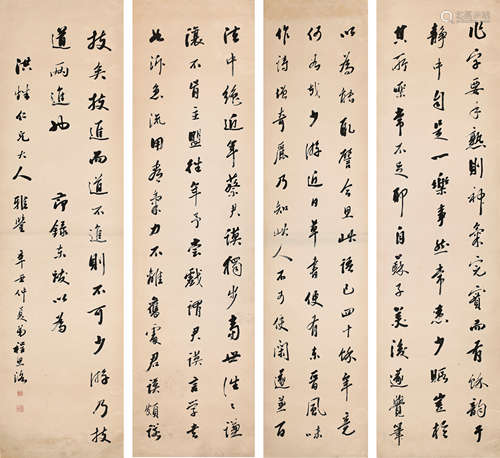 作字要手熟則神氣完實而有餘韵于
靜中自是一樂事然常患少暇豈於
其所樂常不足耶自蘇子美沒遂覺筆
以為能取譬今思此語已四十餘年竟
何如哉少游近日草書便有東晉風味
作詩增奇麗乃知此人不可使閑遂兼百
法中絕近年蔡君謨獨步當世往往謙
讓不肯主盟往年予嘗戲謂君謨言學書
如泝急流用盡氣力不離舊處君謨頗諾
技矣技進而道不進則不可少游乃技
道兩進也 節錄東跋以為
洪 仁兄大人雅鑒 辛丑仲夏弟程